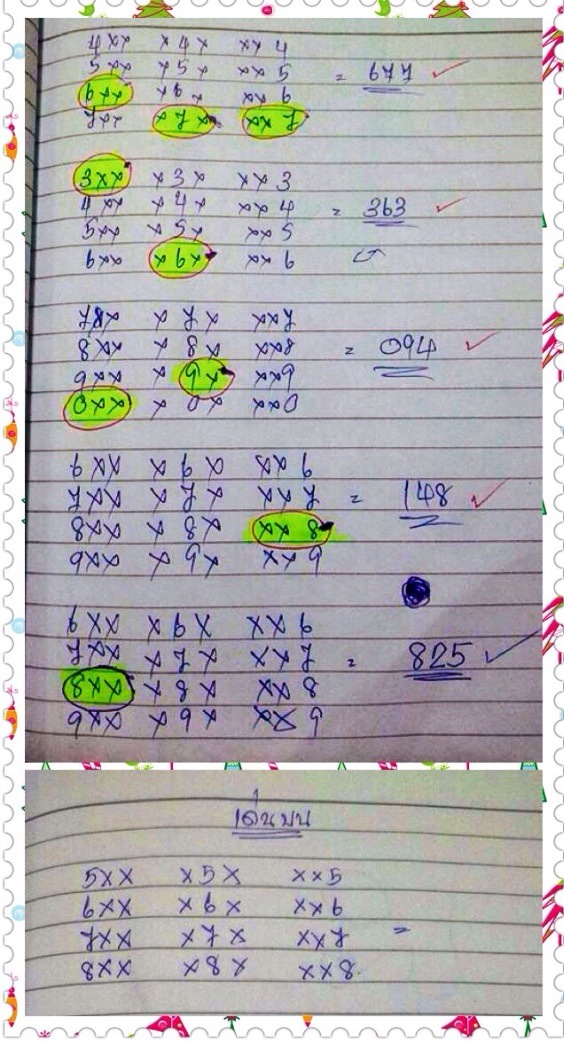 4xx x4x xx4
5xx x5x xx5 = 677 ✓
6xx x6x xx6
7xx x7x xx7
3xx x3x xx3
4xx x4x xx4 = 363 ✓
5xx x5x xx5
6xx x6x xx6
78x x7x xx7
8xx x8x xx8 = 094 ✓
9xx x9x xx9
0xx x0x xx0
6xx x6x xx6
7xx x7x xx7 = 148 ✓
8xx x8x xx8
9xx x9x xx9
6xx x6x xx6
7xx x7x xx7 = 825 ✓
8xx x8x xx8
9xx x9x xx9
เด่นบน
5xx x5x xx5
6xx x6x xx6
7xx x7x xx7 =
8xx x8x xx8